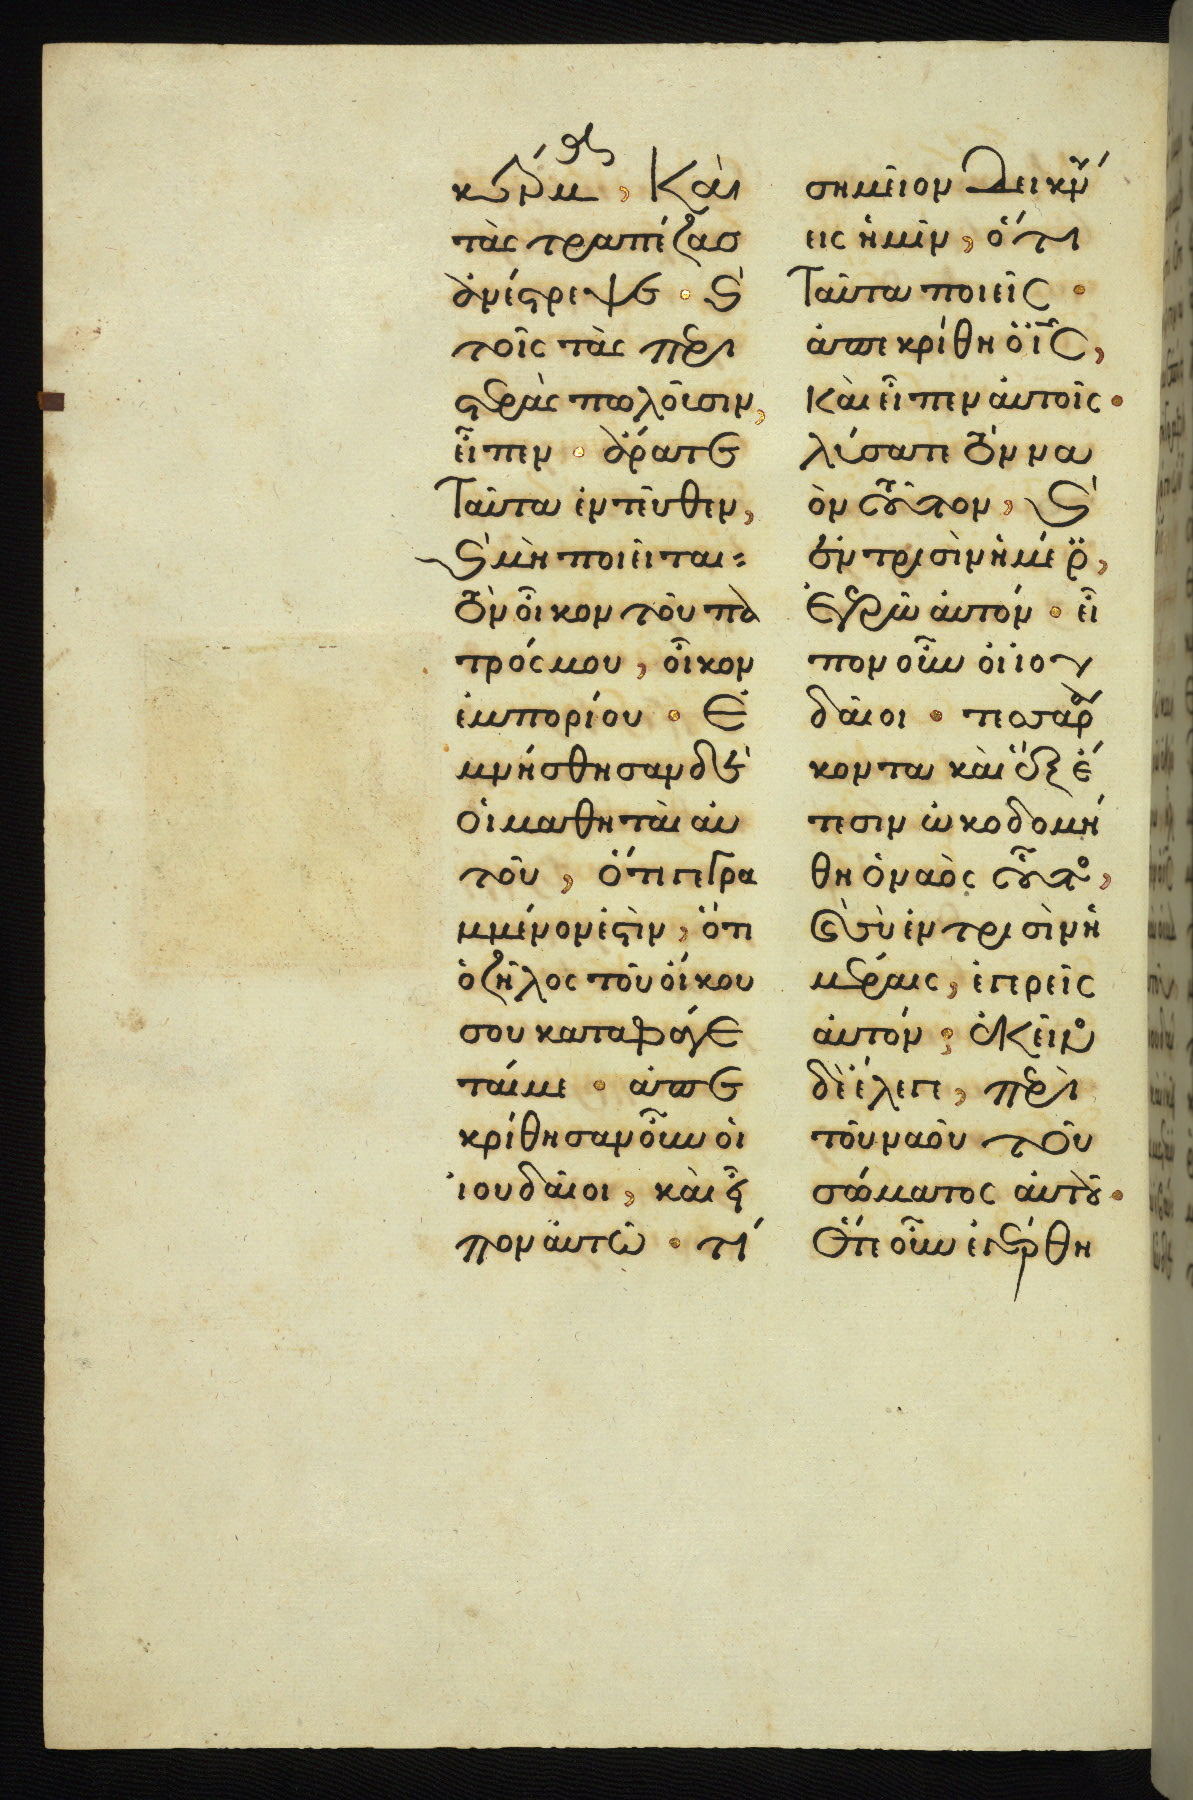 κέρμα, Καὶ
τὰς τραπέζας
ἀνέστρεψε· καὶ
τοῖς τὰς περι
στερὰς πωλοῦσιν,
εἶπεν· ἄρατε
Ταῦτα ἐντεῦθεν,
καὶ μὴ ποιεῖται
τὸν οἶκον τοῦ πα
τρός μου, οἶκον
ἐμπορίου· Ἐ
μνήσθησαν δὲ
οἱ μαθηταὶ αυ
τοῦ, ὅτι γεγρα
μμένον ἐστὶν, ὅτι
ὁ ζῆλος τοῦ οἴκου
σου καταφάγε
ταί με· ἀπε
κρίθησαν οὖν οἱ
ιουδαῖοι, καὶ εἶ
πον ἀυτῶ· τί
σημεῖον Δεικνύ
εις ἡμῖν, ὅτι
Ταῦτα ποιεῖς·
ἀπεκρίθη ὁ ἰς,
Καὶ εἶπεν ἀυτοῖς·
λύσατε τὸν να
ὸν τοῦτον, καὶ
ἐν τρισὶν ἡμέρ,
Ἐγερῶ ἀυτόν· εἶ
πον οὖν οἱ ιου
δαῖοι· τεσσαρά
κοντα καὶ ἓξ ἔ
τεσιν ὠκοδομή
θη ὁ ναὸς οὗτος,
καὶ σὺ ἐν τρισὶν ἡ
μέραις, ἐγερεῖς
ἀυτόν; ἐκεῖνος
δὲ ἔλεγε, περὶ
τοῦ ναοῦ τοῦ
σώματος ἀυτοῦ·
Ὅτε οὖν ἠγέρθη